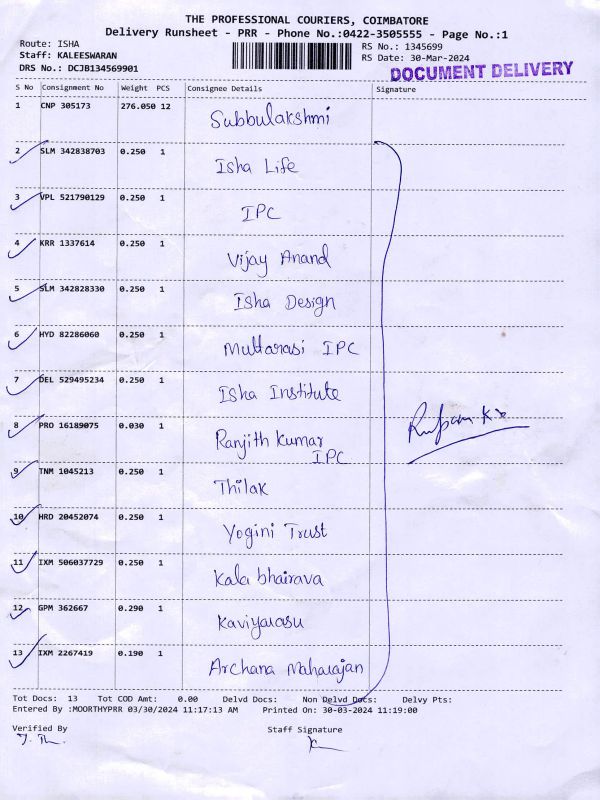 THE PROFESSIONAL COURIERS, COIMBATORE
Delivery Runsheet - PRR - Phone No.:0422-3505555 - Page No.:1
Route: ISHA
Staff: KALEESWARAN
DRS No.: DCJB134569901
RS No.: 1345699
RS Date: 30-Mar-2024
DOCUMENT DELIVERY
S No Consignment No Weight PCS Consignee Details Signature
1 CNP 305173 276.050 12 Subbulakshmi
2 SLM 342838703 0.250 1 Isha Life
3 VPL 521790129 0.250 1 IPC
4 KRR 1337614 0.250 1 Vijay Anand
5 SLM 342828330 0.250 1 Isha Design
6 HYD 82286060 0.250 1 Muttarasi IPC
7 DEL 529495234 0.250 1 Isha Institute
8 PRO 16189075 0.030 1 Ranjith Kumar
IPC
9 TNM 1045213 0.250 1 Thilak
10 HRD 20452074 0.250 1 Yogini Trust
11 IXM 506037729 0.250 1 Kala bhairava
12 GPM 362667 0.290 1 Kaviyarasu
13 IXM 2267419 0.190 1 Archana Maharajan
Tot Docs: 13 Tot COD Amt: 0.00 Delvd Docs: Non Delvd Docs: Delvy Pts:
Entered By :MOORTHYPRR 03/30/2024 11:17:13 AM Printed On: 30-03-2024 11:19:00
Verified By Staff Signature